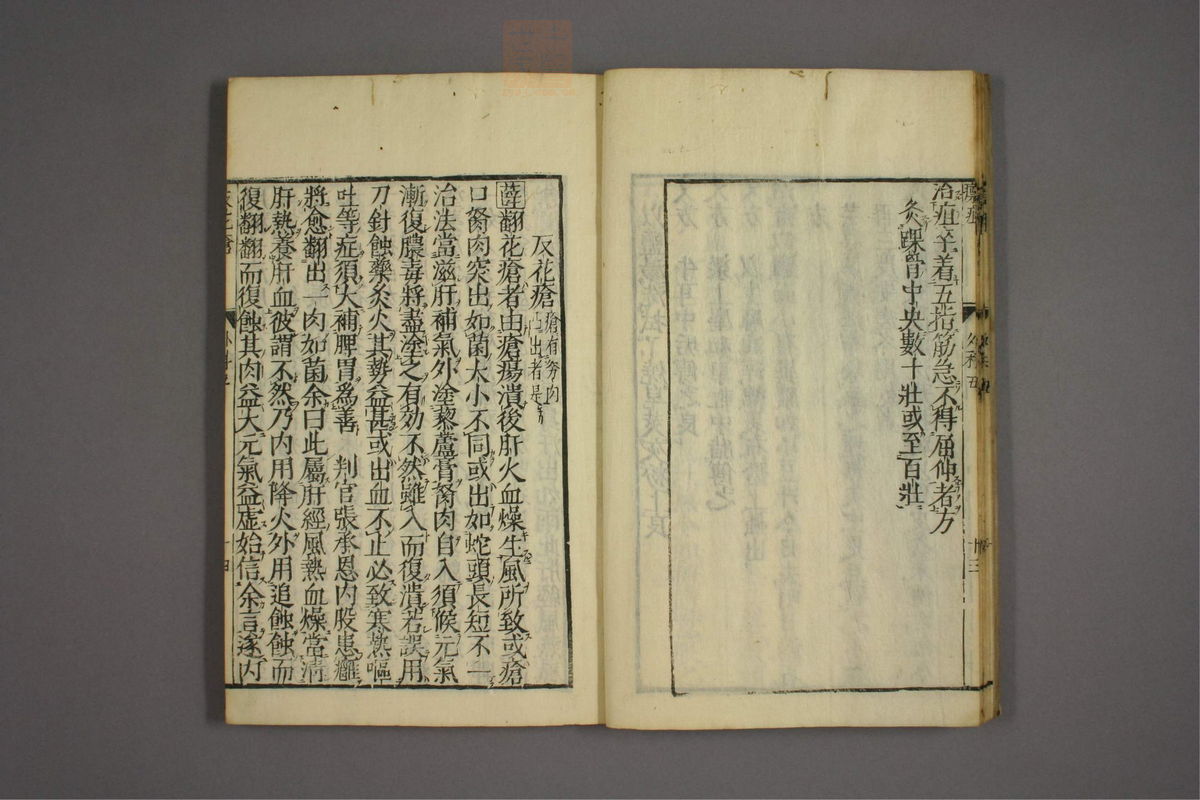 治疽卒着五指筋急不得屈伸者方
灸踝骨中央數十壯或至百壯
外科五
十三
反花瘡瘡有努肉
凸出者是
薛翻花瘡者由瘡瘍潰後肝火血燥生風所致或瘡
口胬肉突出如菌大小不同或出如蛇頭長短不一
治法當滋肝補氣外塗藜蘆膏胬肉自入須候元氣
漸復膿毒將盡塗之有効不然雖入而復潰若誤用
刀針蝕藥灸火其勢益甚或出血不止必致寒熱嘔
吐等症須大補脾胃爲善 判官張承恩内股患癰
將愈翻出一肉如菌余曰此屬肝經風熱血燥當清
肝熱養肝血彼謂不然乃内用降火外用追蝕蝕而
復翻翻而復蝕其肉益大元氣益虛始信余言遂内